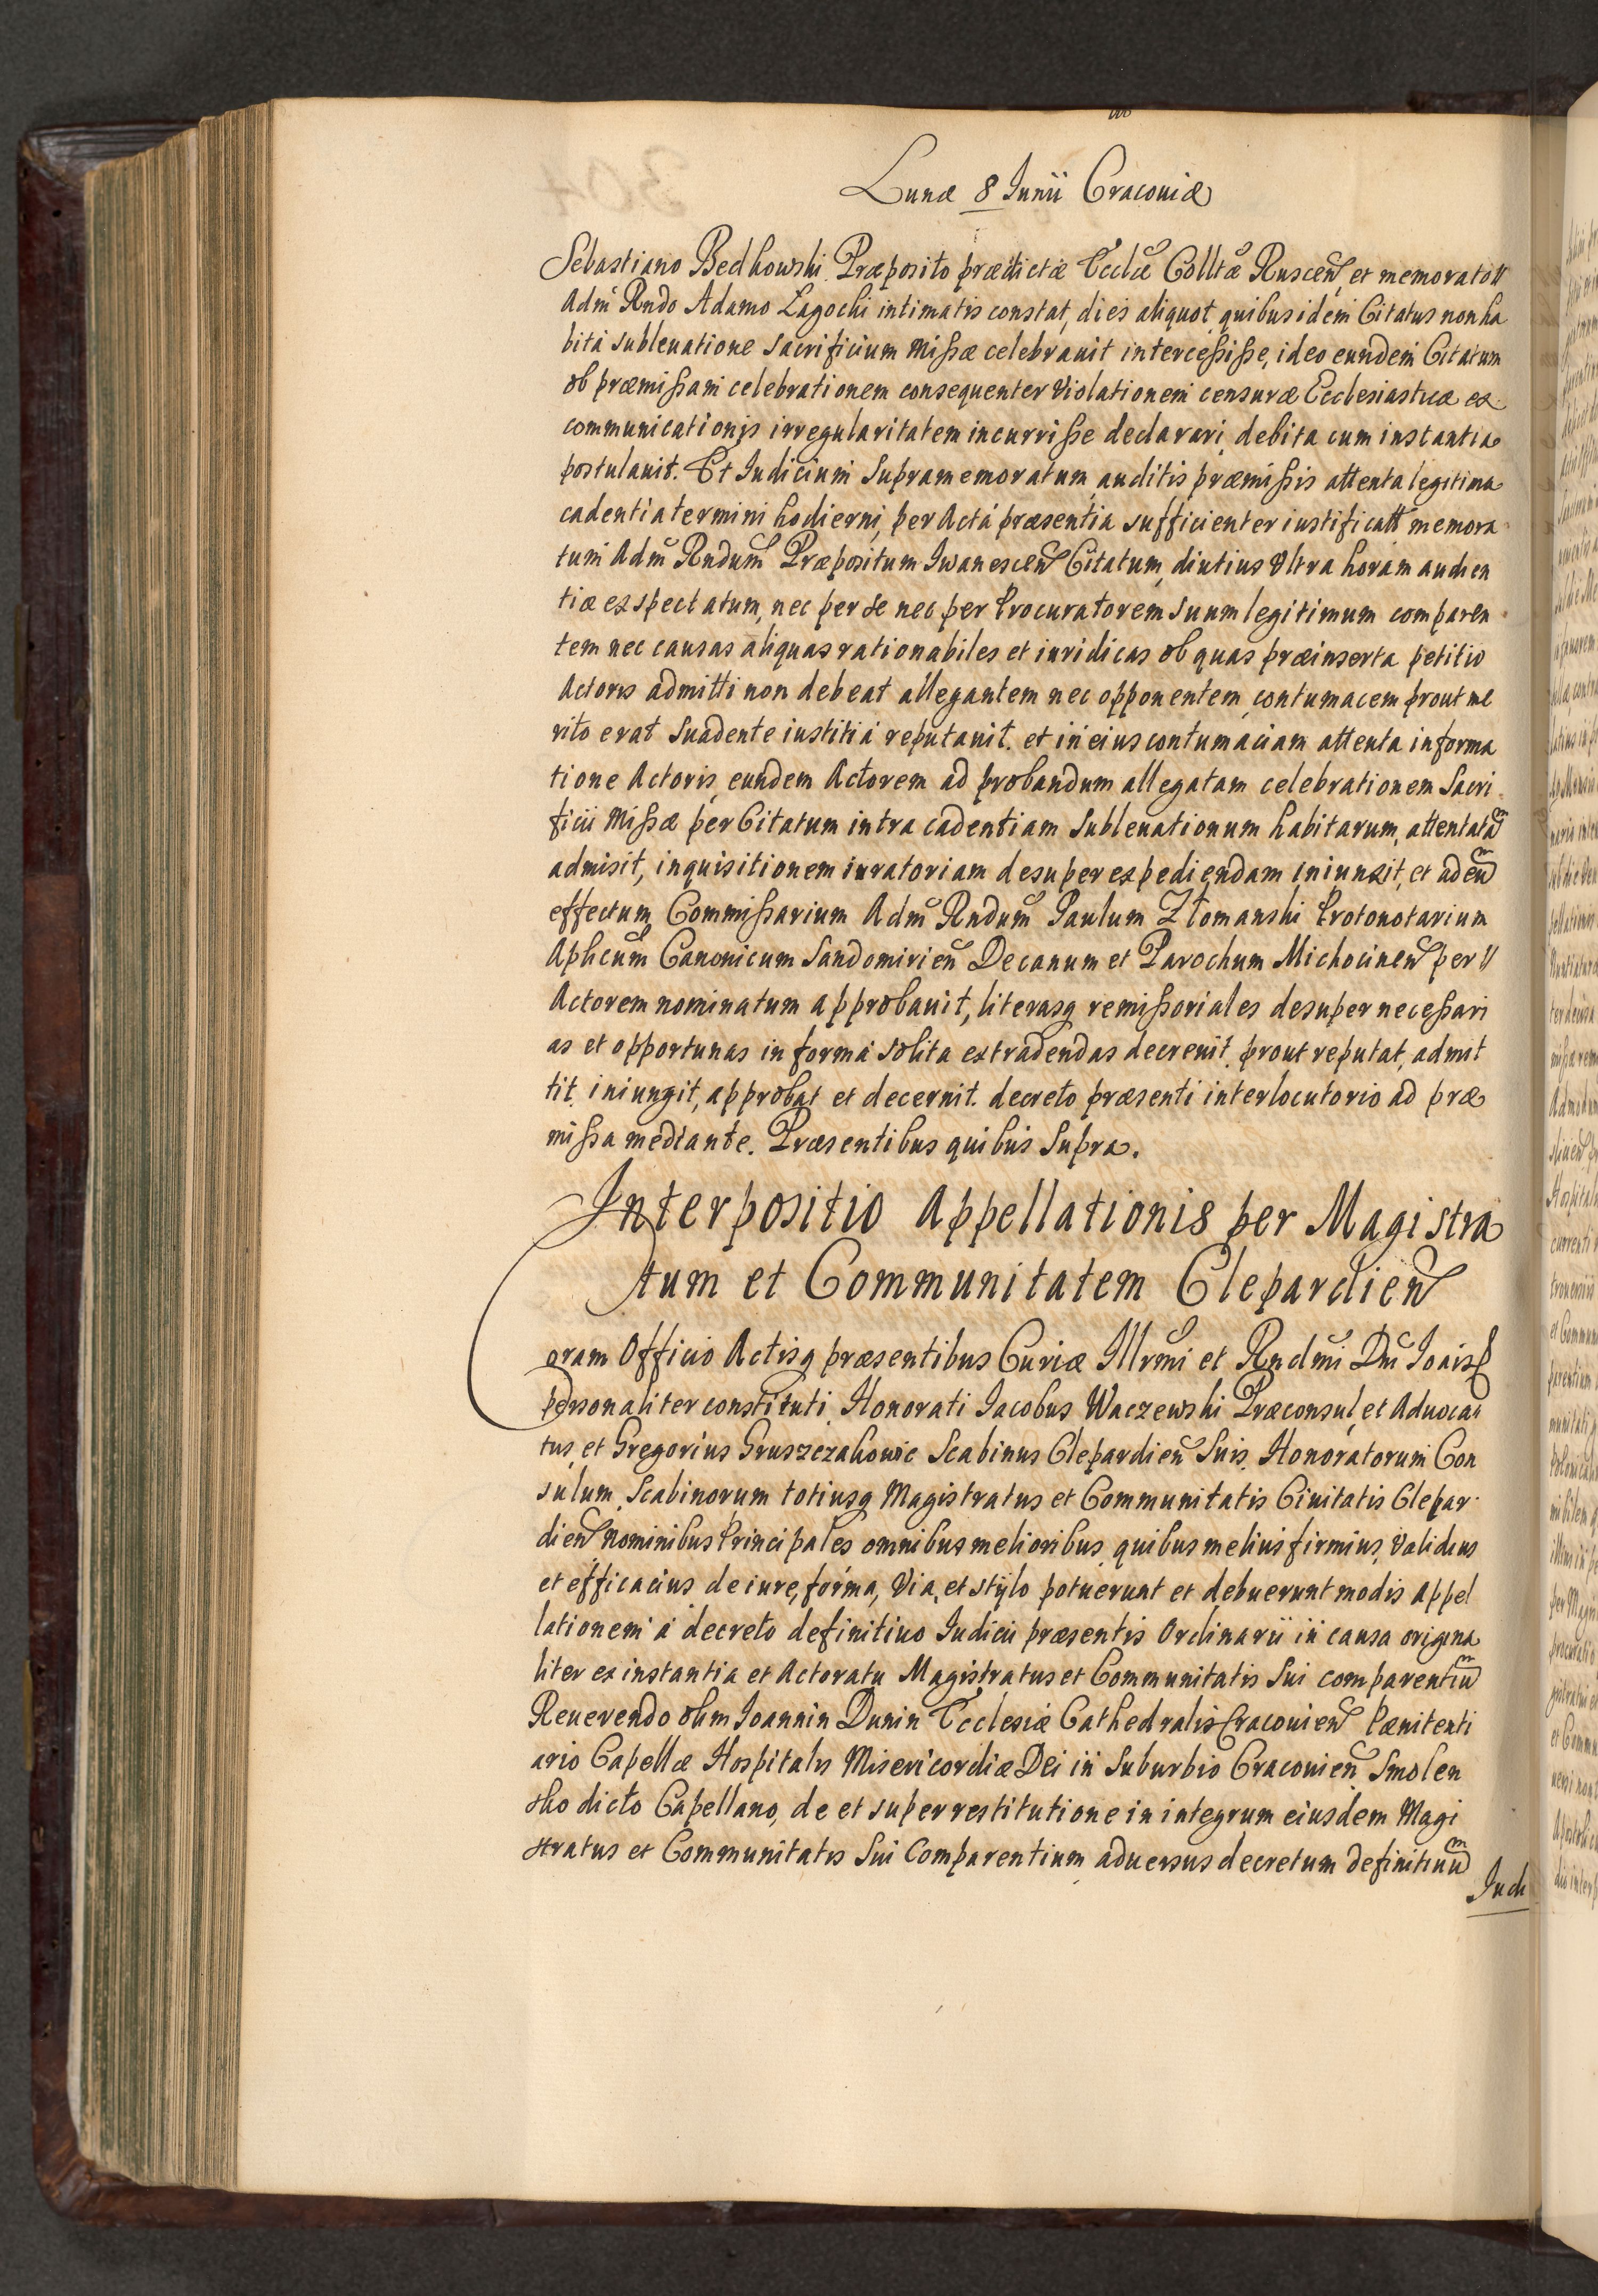 Lunæ 8 Junii Cracouiæ
Sebastiano Bedkowski Præposito prædictæ Eccłæ Colltæ Ruscen̄, et memorato
Adm̄ Rndo Adamo Łagocki intimatis constat, dies aliquot quibus idem Citatus non ha
bitâ subleuatione sacrificium Missæ celebrauit intercessisse, ideo eundem Citatum
ob præmissam celebrationem consequenter Violationem censuræ Ecclesiasticæ ex
communicationis irregularitatem incurrisse declarari debita cum instantia
postulauit. Et Iudicium Supramemoratum auditis præmissis attenta legitima
cadentia termini hodierni, per Acta præsentia sufficienter iustificatâ memora
tum Adm̄ Rndum̄ Præpositum Iwanescen̄ Citatum, diutius Vltra horam audien
tiæ exspectatum, nec per se nec per Procuratorem suum legitimum comparen
tem nec causas aliquas rationabiles et iuridicas ob quas præinserta petitio
Actoris admitti non debeat allegantem nec opponentem, contumacem prout me
rito erat Suadente iustitiâ reputauit. et in eius contumaciam attenta informa
tione Actoris, eundem Actorem ad probandum allegatam celebrationem Sacri
ficii Missæ per Citatum intra cadentiam Subleuationum habitarum, attentatam
admisit, inquisitionem iuratoriam desuper expediendam iniunxit, et ad eum
effectum Commissarium Adm̄ Rndum̄ Paulum Złomanski Protonotarium
Aplicum̄ Canonicum Sandomirien̄ Decanum et Parochum Michocinen̄ per
Actorem nominatum approbauit, literasq remissoriales desuper necessari
as et opportunas in forma solita extradendas decreuit. prout reputat, admit
tit, iniungit, approbat et decernit. decreto præsenti interlocutorio ad præ
missa mediante. Præsentibus quibus Supra.
Interpositio Appellationis per Magistra
tum et Communitatem Clepardien̄
Coram Officio Actisq præsentibus Curiæ Illrmi et Rndmi Dni Ioais
personaliter constituti Honorati Iacobus Waczewski Præconsul et Aduoca
tus, et Gregorius Gruszczakowic Scabinus Clepardien̄ Suis, Honoratorum Con
sulum Scabinorum totiusq Magistratus et Communitatis Ciuitatis Clepar
dien̄ nominibus Principales omnibus melioribus, quibus melius firmius, Validius
et efficacius de iure, forma, Via, et stylo potuerunt et debuerunt modis Appel
lationem à decreto definitiuo Iudicii præsentis Ordinarii in causa origina
liter ex instantia et Actoratu Magistratus et Communitatis Sui comparentium
Reuerendo olim Ioannin Dunin Ecclesiæ Cathedralis Cracouien̄ Pænitenti
ario Capellæ Hospitalis Misericordiæ Dei in Suburbio Cracouien̄ Smolen
sko dicto Capellano, de et super restitutione in integrum eiusdem Magi
stratus et Communitatis Sui Comparentium aduersus decretum definitiuum
Iudi